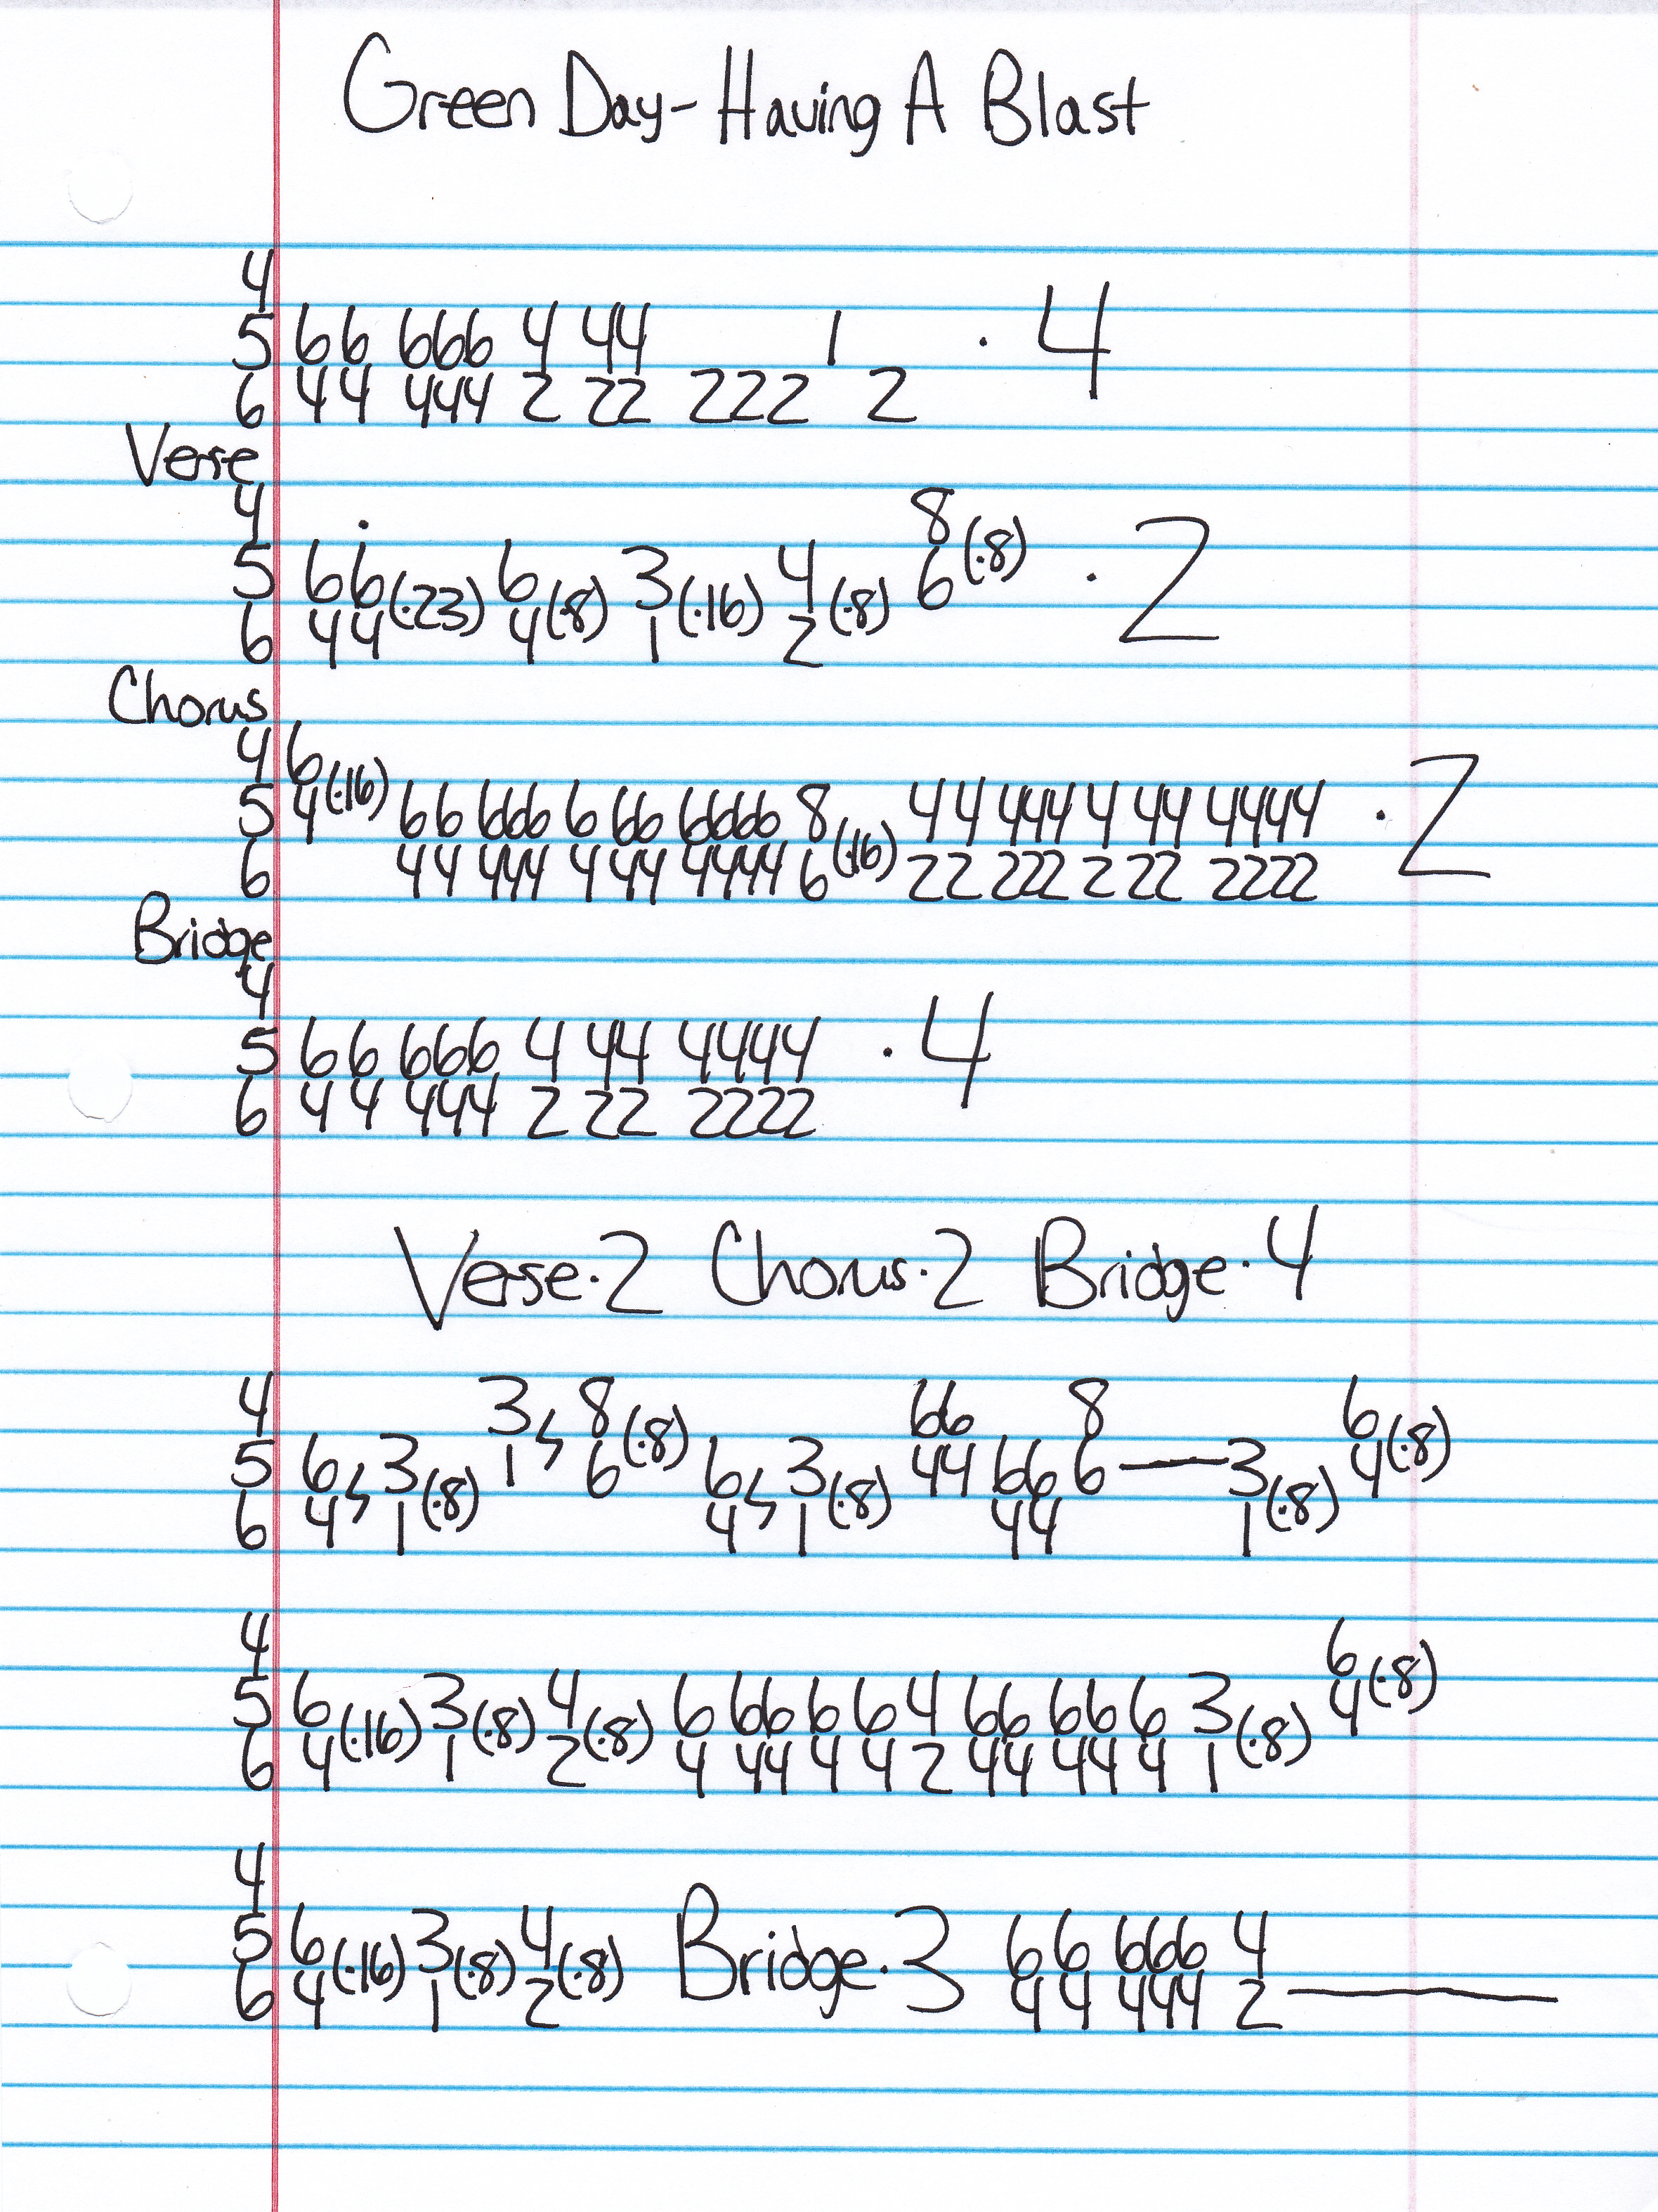 Green Day - Having A Blast
4
5 66 666 4 44 1 · 4
6 44 444 2 22 222 2
Verse
4 8
5 66(·23) 6(·8) 3(·16) 4(·8) 6(·8) · 2
6 44 4 1 2
Chorus
4 6
5 4(·16) 66 666 6 66 6666 8 44 444 4 44 4444 · 2
6 44 444 4 44 4444 6(·16) 22 222 2 22 2222
Bridge
4
5 66 666 4 44 4444 · 4
6 44 444 2 22 2222
Verse·2 Chorus·2 Bridge·4
4 3 8 66 8 6
5 6 3 1 6(·8) 6 3 44 66 6 — 3 4(·8)
6 4 1(·8) 4 1(·8) 44 1(·8)
4 6
5 6 3 4 6 66 6 6 4 66 66 6 3 4(·8)
6 4(·16) 1(·8) 2(·8) 4 44 4 4 2 44 44 4 1(·8)
4
5 6 3 4 Bridge·3 66 666 4
6 4(·16) 1(·8) 2(·8) 44 444 2 —